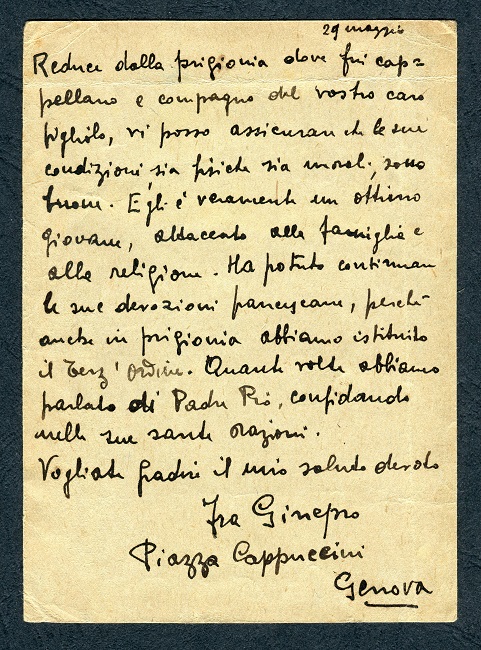 29 maggio
Reduce dalla prigionia dove fui cap=
pellano e compagno del vostro caro
figliolo, vi posso assicurare che le sue
condizioni sia fisiche sia morali, sono
buone. Egli è veramente un ottimo
giovane, attaccato alla famiglia e
alla religione. Ha potuto continuare
le sue devozioni francescane, perchè
anche in prigionia abbiamo istituito
il Terz'ordine. Quante volte abbiamo
parlato di Padre Pio, confidando
nelle sue sante orazioni.
Vogliate gradire il mio saluto devoto
Fra Ginepro
Piazza Cappuccini
Genova